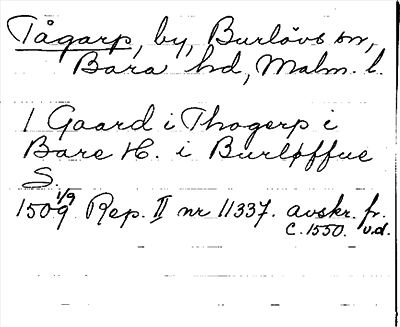 Tågarp, by, Burlövs sn,
Bara hd, Malm. l.
1 Gaard i Thogerp i
Bare H. i Burløffue
S.
1509 1/9 Rep. II nr 11337. avskr. fr.
c. 1550. v.d.